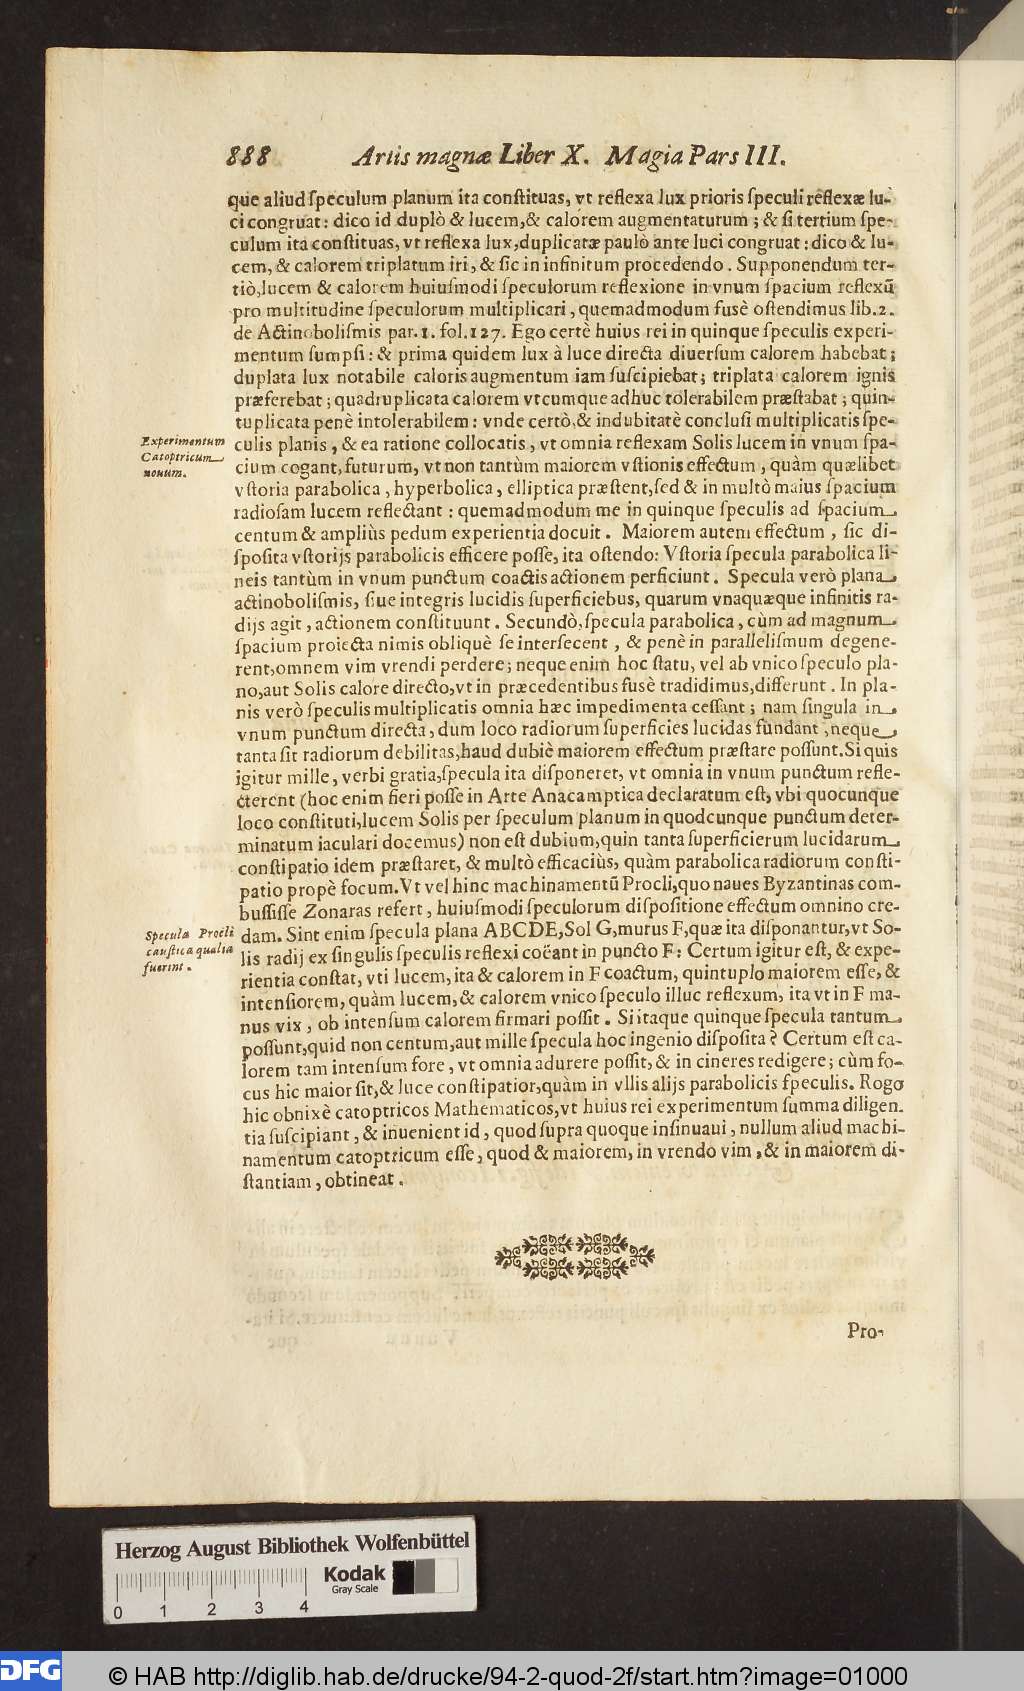 888 Artis magnæ Liber X. Magia Pars III.
que aliud ſpeculum planum ita conſtituas, vt reflexa lux prioris ſpeculi reflexæ lu-
ci congruat: dico id duplò & lucem,& calorem augmentaturum; & ſi tertium ſpe-
culum ita conſtituas, vt reflexa lux,duplicatæ paulò ante luci congruat: dico & lu-
cem, & calorem triplatum iri, & ſic in infinitum procedendo. Supponendum ter-
tiò,lucem & calorem huiuſmodi ſpeculorum reflexione in vnum ſpacium reflexũ
pro multitudine ſpeculorum multiplicari, quemadmodum fusè oſtendimus lib.2.
de Actinoboliſmis par.1. fol.127. Ego certè huius rei in quinque ſpeculis experi-
mentum ſumpſi: & prima quidem lux à luce directa diuerſum calorem habebat;
duplata lux notabile caloris augmentum iam ſuſcipiebat; triplata calorem ignis
præferebat; quadruplicata calorem vtcumque adhuc tolerabilem præſtabat; quin-
tuplicata penè intolerabilem: vnde certò,& indubitatè concluſi multiplicatis ſpe-
Experimentum
Catoptricum
nouum.
culis planis, & ea ratione collocatis, vt omnia reflexam Solis lucem in vnum ſpa-
cium cogant, futurum, vt non tantùm maiorem vſtionis effectum, quàm quælibet
vſtoria parabolica, hyperbolica, elliptica præſtent,ſed & in multò maius ſpacium
radioſam lucem reflectant: quemadmodum me in quinque ſpeculis ad ſpacium
centum & ampliùs pedum experientia docuit. Maiorem autem effectum, ſic di-
ſpoſita vſtorijs parabolicis efficere poſſe, ita oſtendo: Vſtoria ſpecula parabolica li-
neis tantùm in vnum punctum coactis actionem perficiunt. Specula verò plana
actinoboliſmis, ſiue integris lucidis ſuperficiebus, quarum vnaquæque infinitis ra-
dijs agit, actionem conſtituunt. Secundò, ſpecula parabolica, cùm ad magnum
ſpacium proiecta nimis obliquè ſe interſecent, & penè in paralleliſmum degene-
rent,omnem vim vrendi perdere; neque enim hoc ſtatu, vel ab vnico ſpeculo pla-
no,aut Solis calore directo,vt in præcedentibus fusè tradidimus,differunt. In pla-
nis verò ſpeculis multiplicatis omnia hæc impedimenta ceſſant; nam ſingula in
vnum punctum directa, dum loco radiorum ſuperficies lucidas fundant, neque
tanta ſit radiorum debilitas,haud dubiè maiorem effectum præſtare poſſunt.Si quis
igitur mille, verbi gratia,ſpecula ita diſponeret, vt omnia in vnum punctum refle-
cterent (hoc enim fieri poſſe in Arte Anacamptica declaratum eſt, vbi quocunque
loco conſtituti,lucem Solis per ſpeculum planum in quodcunque punctum deter-
minatum iaculari docemus) non eſt dubium,quin tanta ſuperficierum lucidarum
conſtipatio idem præſtaret, & multò efficaciùs, quàm parabolica radiorum conſti-
patio propè focum.Vt vel hinc machinamentũ Procli,quo naues Byzantinas com-
buſſiſſe Zonaras refert, huiuſmodi ſpeculorum diſpoſitione effectum omnino cre-
Specula Procli
cauſtica qualia
fuerint.
dam. Sint enim ſpecula plana ABCDE,Sol G,murus F,quæ ita diſponantur,vt So-
lis radij ex ſingulis ſpeculis reflexi coëant in puncto F: Certum igitur eſt, & expe-
rientia conſtat, vti lucem, ita & calorem in F coactum, quintuplo maiorem eſſe, &
intenſiorem, quàm lucem,& calorem vnico ſpeculo illuc reflexum, ita vt in F ma-
nus vix, ob intenſum calorem firmari poſſit. Si itaque quinque ſpecula tantum
poſſunt,quid non centum,aut mille ſpecula hoc ingenio diſpoſita? Certum eſt ca-
lorem tam intenſum fore, vt omnia adurere poſſit, & in cineres redigere; cùm fo-
cus hic maior ſit,& luce conſtipatior,quàm in vllis alijs parabolicis ſpeculis. Rogo
hic obnixè catoptricos Mathematicos,vt huius rei experimentum ſumma diligen.
tia ſuſcipiant, & inuenient id, quod ſupra quoque inſinuaui, nullum aliud machi-
namentum catoptricum eſſe, quod & maiorem, in vrendo vim,& in maiorem di-
ſtantiam, obtineat.
Pro-
Herzog August Bibliothek Wolfenbüttel
Kodak
Gray Scale
0 1 2 3 4
DFG © HAB http://diglib.hab.de/drucke/94-2-quod-2f/start.htm?image=01000